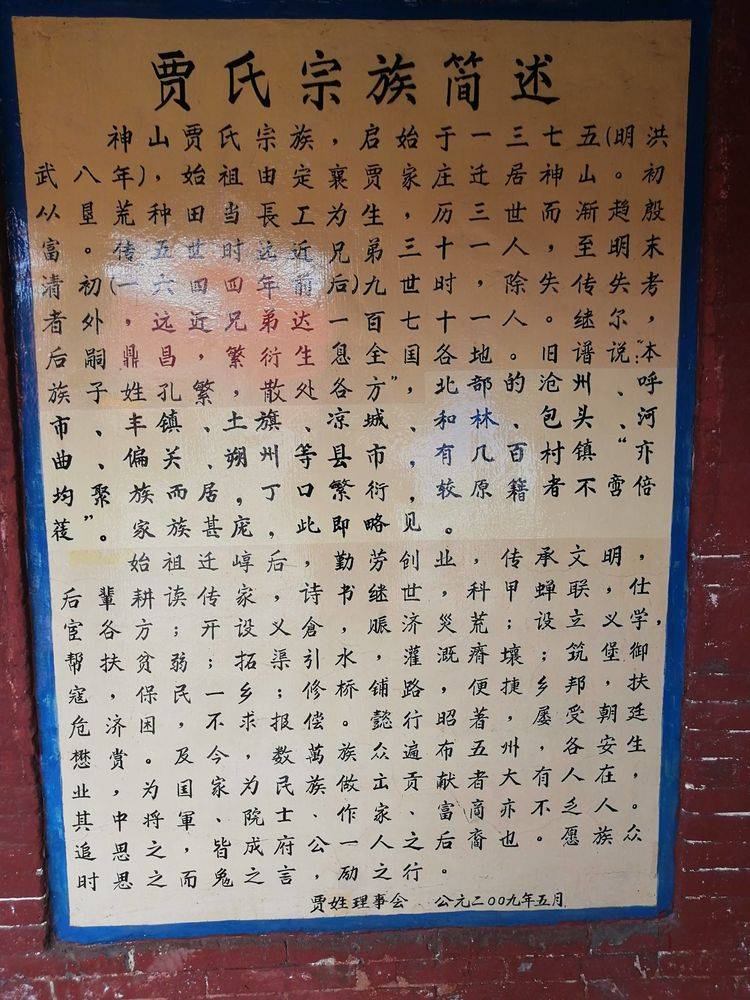 贾氏宗族简述
神山贾氏宗族,启始于一三七五(明洪
武八年),始祖由定襄贾家庄迁居神山。初
从垦荒种田当長工为生,历三世而渐趙殷
富。传五世时远近兄弟三十一人,至明末
清初(一六四四年前后)九世时,除失传失考
者外,远近四兄弟达一百七十一人。继尔,
后嗣鼎昌,繁衍生息全国各地。旧谱说:“本
族子姓孔繁,散处各方”,北部的沧州、呼
市、丰镇、土旗、凉城、和林、包头、河
曲、偏关、朔州等县市,有几百村镇“亦
均聚族而居,丁口繁衍,见较原籍者不啻倍
蓰”。家族甚庞,此即略。
始祖迁崞后,勤劳创业,传承文明,
后輩耕读传家,诗书继世,科甲蝉联,仕
宦各方;开设义倉,赈济災荒;设立义学,
帮扶贫弱;拓渠引水,灌溉瘠壤;筑堡御
寇,保民一乡;修桥铺路,便捷乡邦,扶
危济困,不求报偿。懿行昭著,屡受朝廷
懋赏。及今,数萬族众遍布五州各安生
业,为国家、为民族做出贡献者大有人在。
其中将軍、院士、作家、富商亦不乏人。
追思之,皆成府公一人之后裔也。愿族众
时思之而免之言,励之行
贾姓理事会 公元二〇〇九年五月